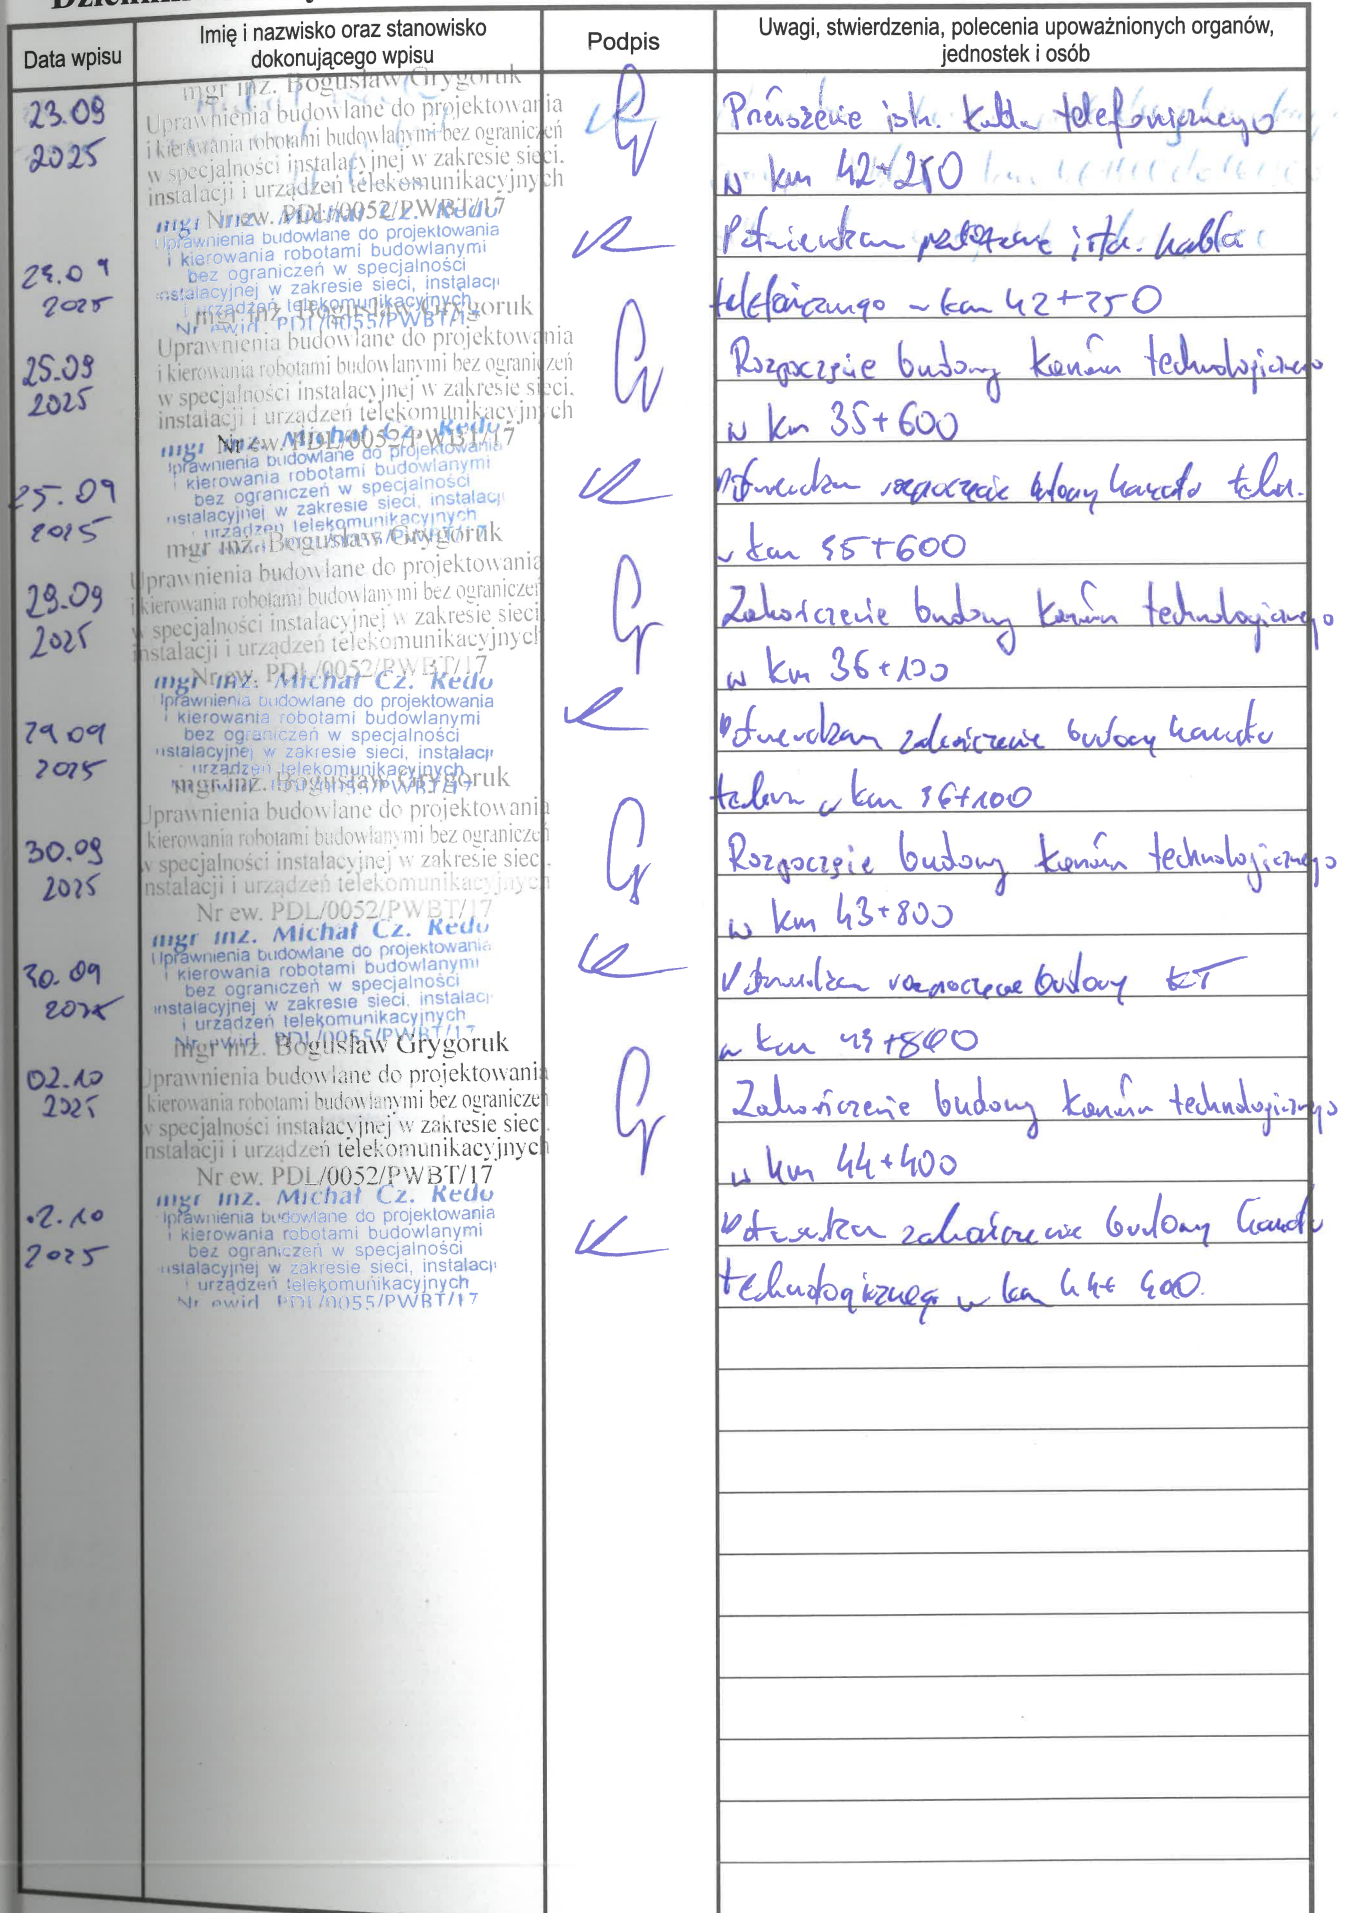 Data wpisu
Imię i nazwisko oraz stanowisko
dokonującego wpisu
Podpis
Uwagi, stwierdzenia, polecenia upoważnionych organów,
jednostek i osób
23.09
2025
mgr inż. Bogusław Grygoruk
Uprawnienia budowlane do projektowania
i kierowania robotami budowlanymi bez ograniczeń
w specjalności instalacyjnej w zakresie sieci.
instalacji i urządzeń telekomunikacyjnych
Nr ew. PDL/0052/PWBT/17
istn. kabla telefonicznego
w km 42+250
2025
mgr inż. Michał Cz. Redo
Uprawnienia budowlane do projektowania
i kierowania robotami budowlanymi
bez ograniczeń w specjalności
instalacyjnej w zakresie sieci, instalacji
i urządzeń telekomunikacyjnych
Nr ewid. PDL/0055/PWBT/17
istn. kabla
telefonicznego w km 42+250
25.09
2025
mgr inż. Bogusław Grygoruk
Uprawnienia budowlane do projektowania
i kierowania robotami budowlanymi bez ograniczeń
w specjalności instalacyjnej w zakresie sieci.
instalacji i urządzeń telekomunikacyjnych
Nr ew. PDL/0052/PWBT/17
Rozpoczęcie budowy kanału technologicznego
w km 35+600
25.09
2025
mgr inż. Michał Cz. Redo
Uprawnienia budowlane do projektowania
i kierowania robotami budowlanymi
bez ograniczeń w specjalności
instalacyjnej w zakresie sieci, instalacji
urządzeń telekomunikacyjnych
Potwierdzam rozpoczęcie budowy kanału
w km 35+600
29.09
2025
mgr inż. Bogusław Grygoruk
Uprawnienia budowlane do projektowania
i kierowania robotami budowlanymi bez ograniczeń
w specjalności instalacyjnej w zakresie sieci
instalacji i urządzeń telekomunikacyjnych
Nr ew. PDL/0052/PWBT/17
Zakończenie budowy kanału technologicznego
w km 36+100
29.09
2025
mgr inż. Michał Cz. Redo
Uprawnienia budowlane do projektowania
i kierowania robotami budowlanymi
bez ograniczeń w specjalności
instalacyjnej w zakresie sieci, instalacji
urządzeń telekomunikacyjnych
Potwierdzam zakończenie budowy kanału
w km 36+100
30.09
2025
mgr inż. Bogusław Grygoruk
Uprawnienia budowlane do projektowania
kierowania robotami budowlanymi bez ograniczeń
w specjalności instalacyjnej w zakresie sieci.
instalacji i urządzeń telekomunikacyjnych
Nr ew. PDL/0052/PWBT/17
Rozpoczęcie budowy kanału technologicznego
w km 43+800
30.09
2025
mgr inż. Michał Cz. Redo
Uprawnienia budowlane do projektowania
i kierowania robotami budowlanymi
bez ograniczeń w specjalności
instalacyjnej w zakresie sieci, instalacji
i urządzeń telekomunikacyjnych
Nr ewid. PDL/0055/PWBT/17
Potwierdzam rozpoczęcie budowy KT
w km 43+800
02.10
2025
mgr inż. Bogusław Grygoruk
Uprawnienia budowlane do projektowania
kierowania robotami budowlanymi bez ograniczeń
w specjalności instalacyjnej w zakresie sieci.
instalacji i urządzeń telekomunikacyjnych
Nr ew. PDL/0052/PWBT/17
Zakończenie budowy kanału technologicznego
w km 44+400
2.10
2025
mgr inż. Michał Cz. Redo
Uprawnienia budowlane do projektowania
i kierowania robotami budowlanymi
bez ograniczeń w specjalności
instalacyjnej w zakresie sieci, instalacji
i urządzeń telekomunikacyjnych
Nr ewid. PDL/0055/PWBT/17
Potwierdzam zakończenie budowy kanału
technologicznego w km 44+400.